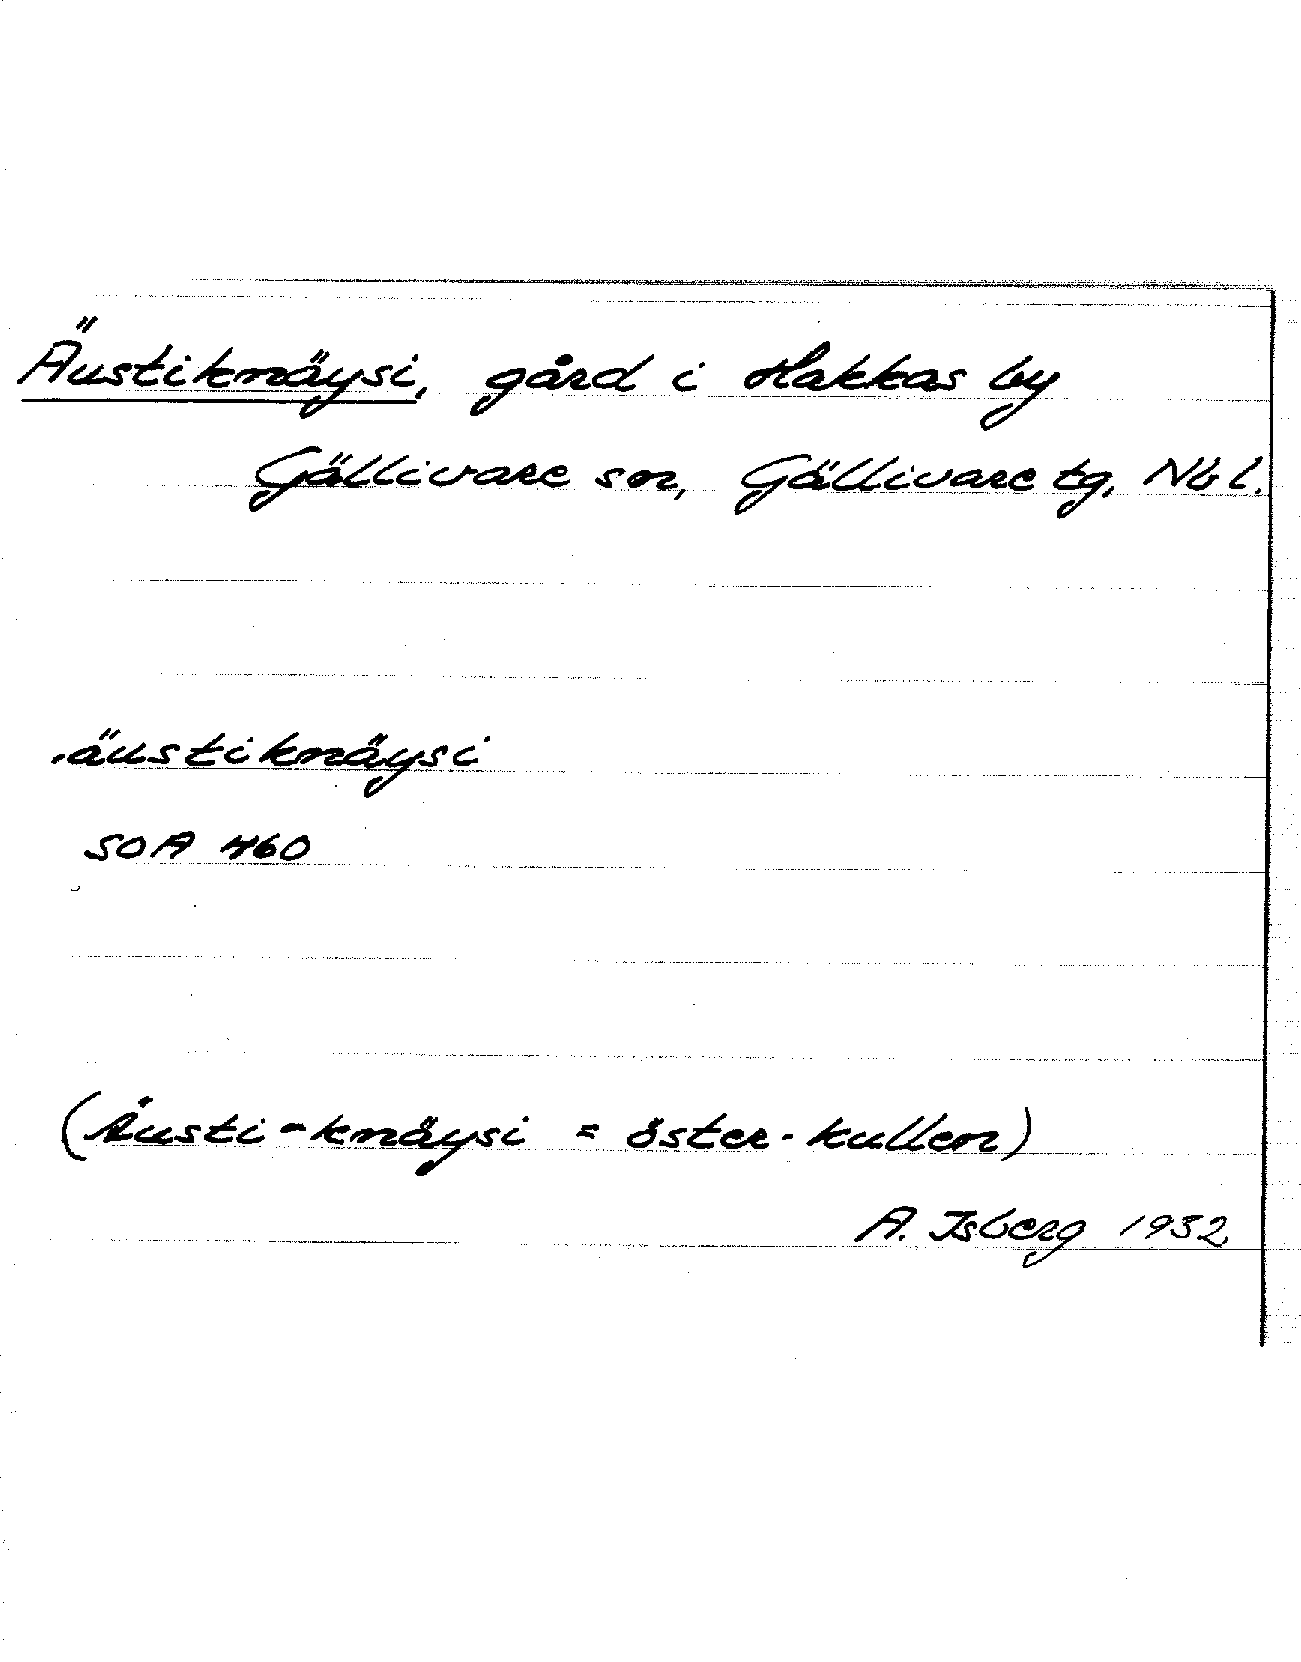 Äustiknäysi, gård i Hakkas by
Gällivare sn, Gällivare tg, Nb l.
äustiknäysi
SOA 460
(Äusti-knäysi = öster-kullen)
A. Isberg 1932